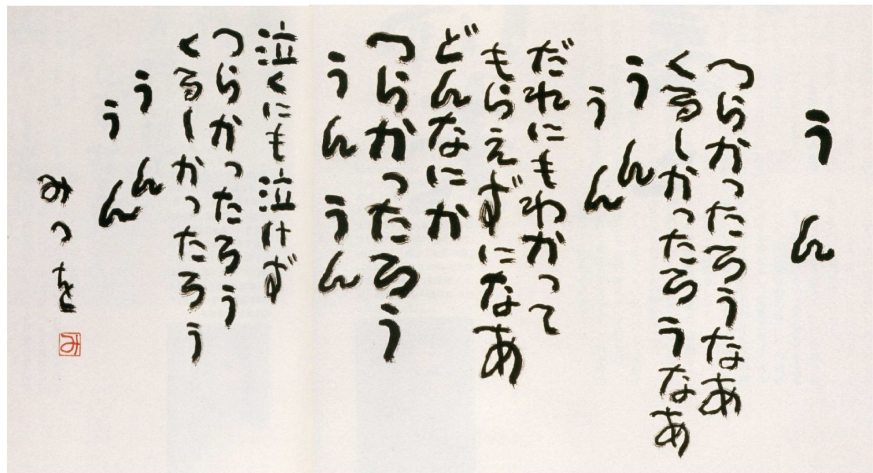 うん
つらかったろうなあ
くるしかったろうなあ
うん
うん
だれにもわかって
もらえずになあ
どんなにか
つらかったろう
うんうん
泣くにも泣けず
つらかったろう
くるしかったろう
うん
うん
みつを
み